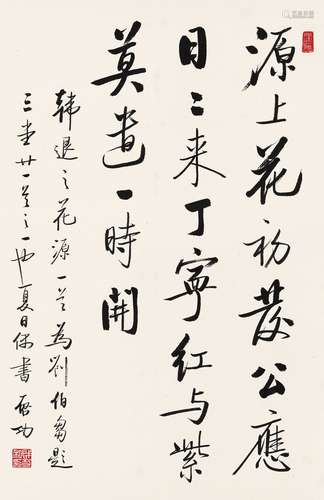 源上花初發公應
日〻来丁寧红与紫
莫遣一時開
韓退之花源一首為劉伯芻題
三堂廿一首之一也夏日偶書啓功